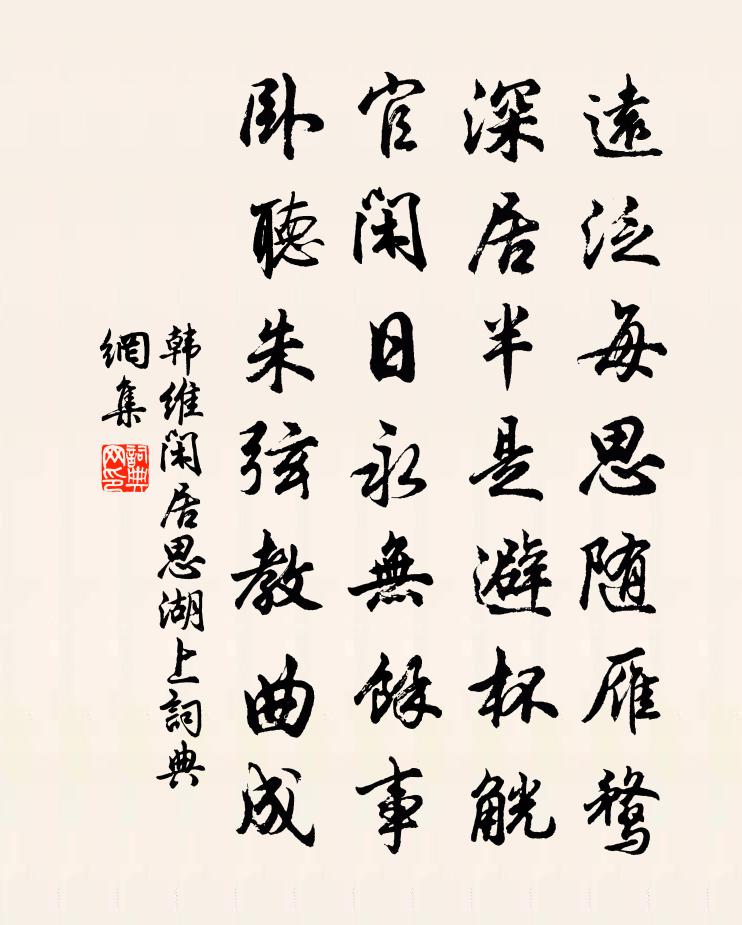 遠泛每思随雁鶩
深居半是避杯觥
官闲日永無餘事
卧聽朱弦教曲成
韩维闲居思湖上詞典
網集
詞典
网印